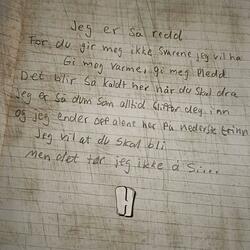 Jeg er så redd
For du gir meg ikke svarene jeg vil ha
Gi meg varme, gi meg pledd
Det blir så kaldt her når du skal dra
Jeg er så dum som alltid slipper deg inn
og jeg ender opp alene her på nederste trinn
Jeg vil at du skal bli
Men det tør jeg ikke å Si....